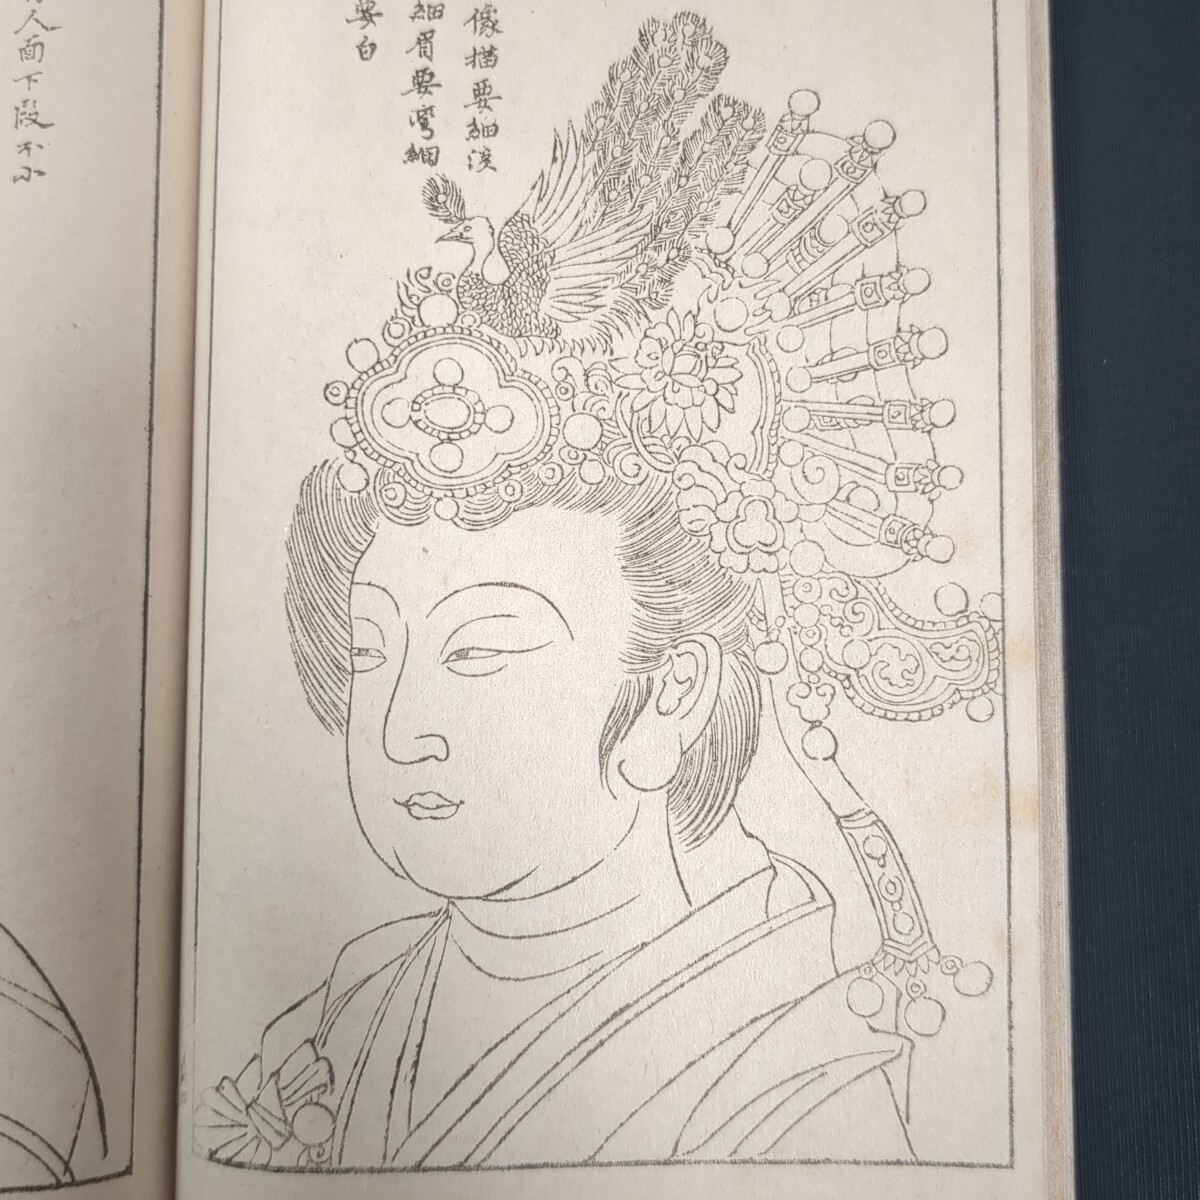 像描要細淡
細眉要彎細
要白
人面下段不小